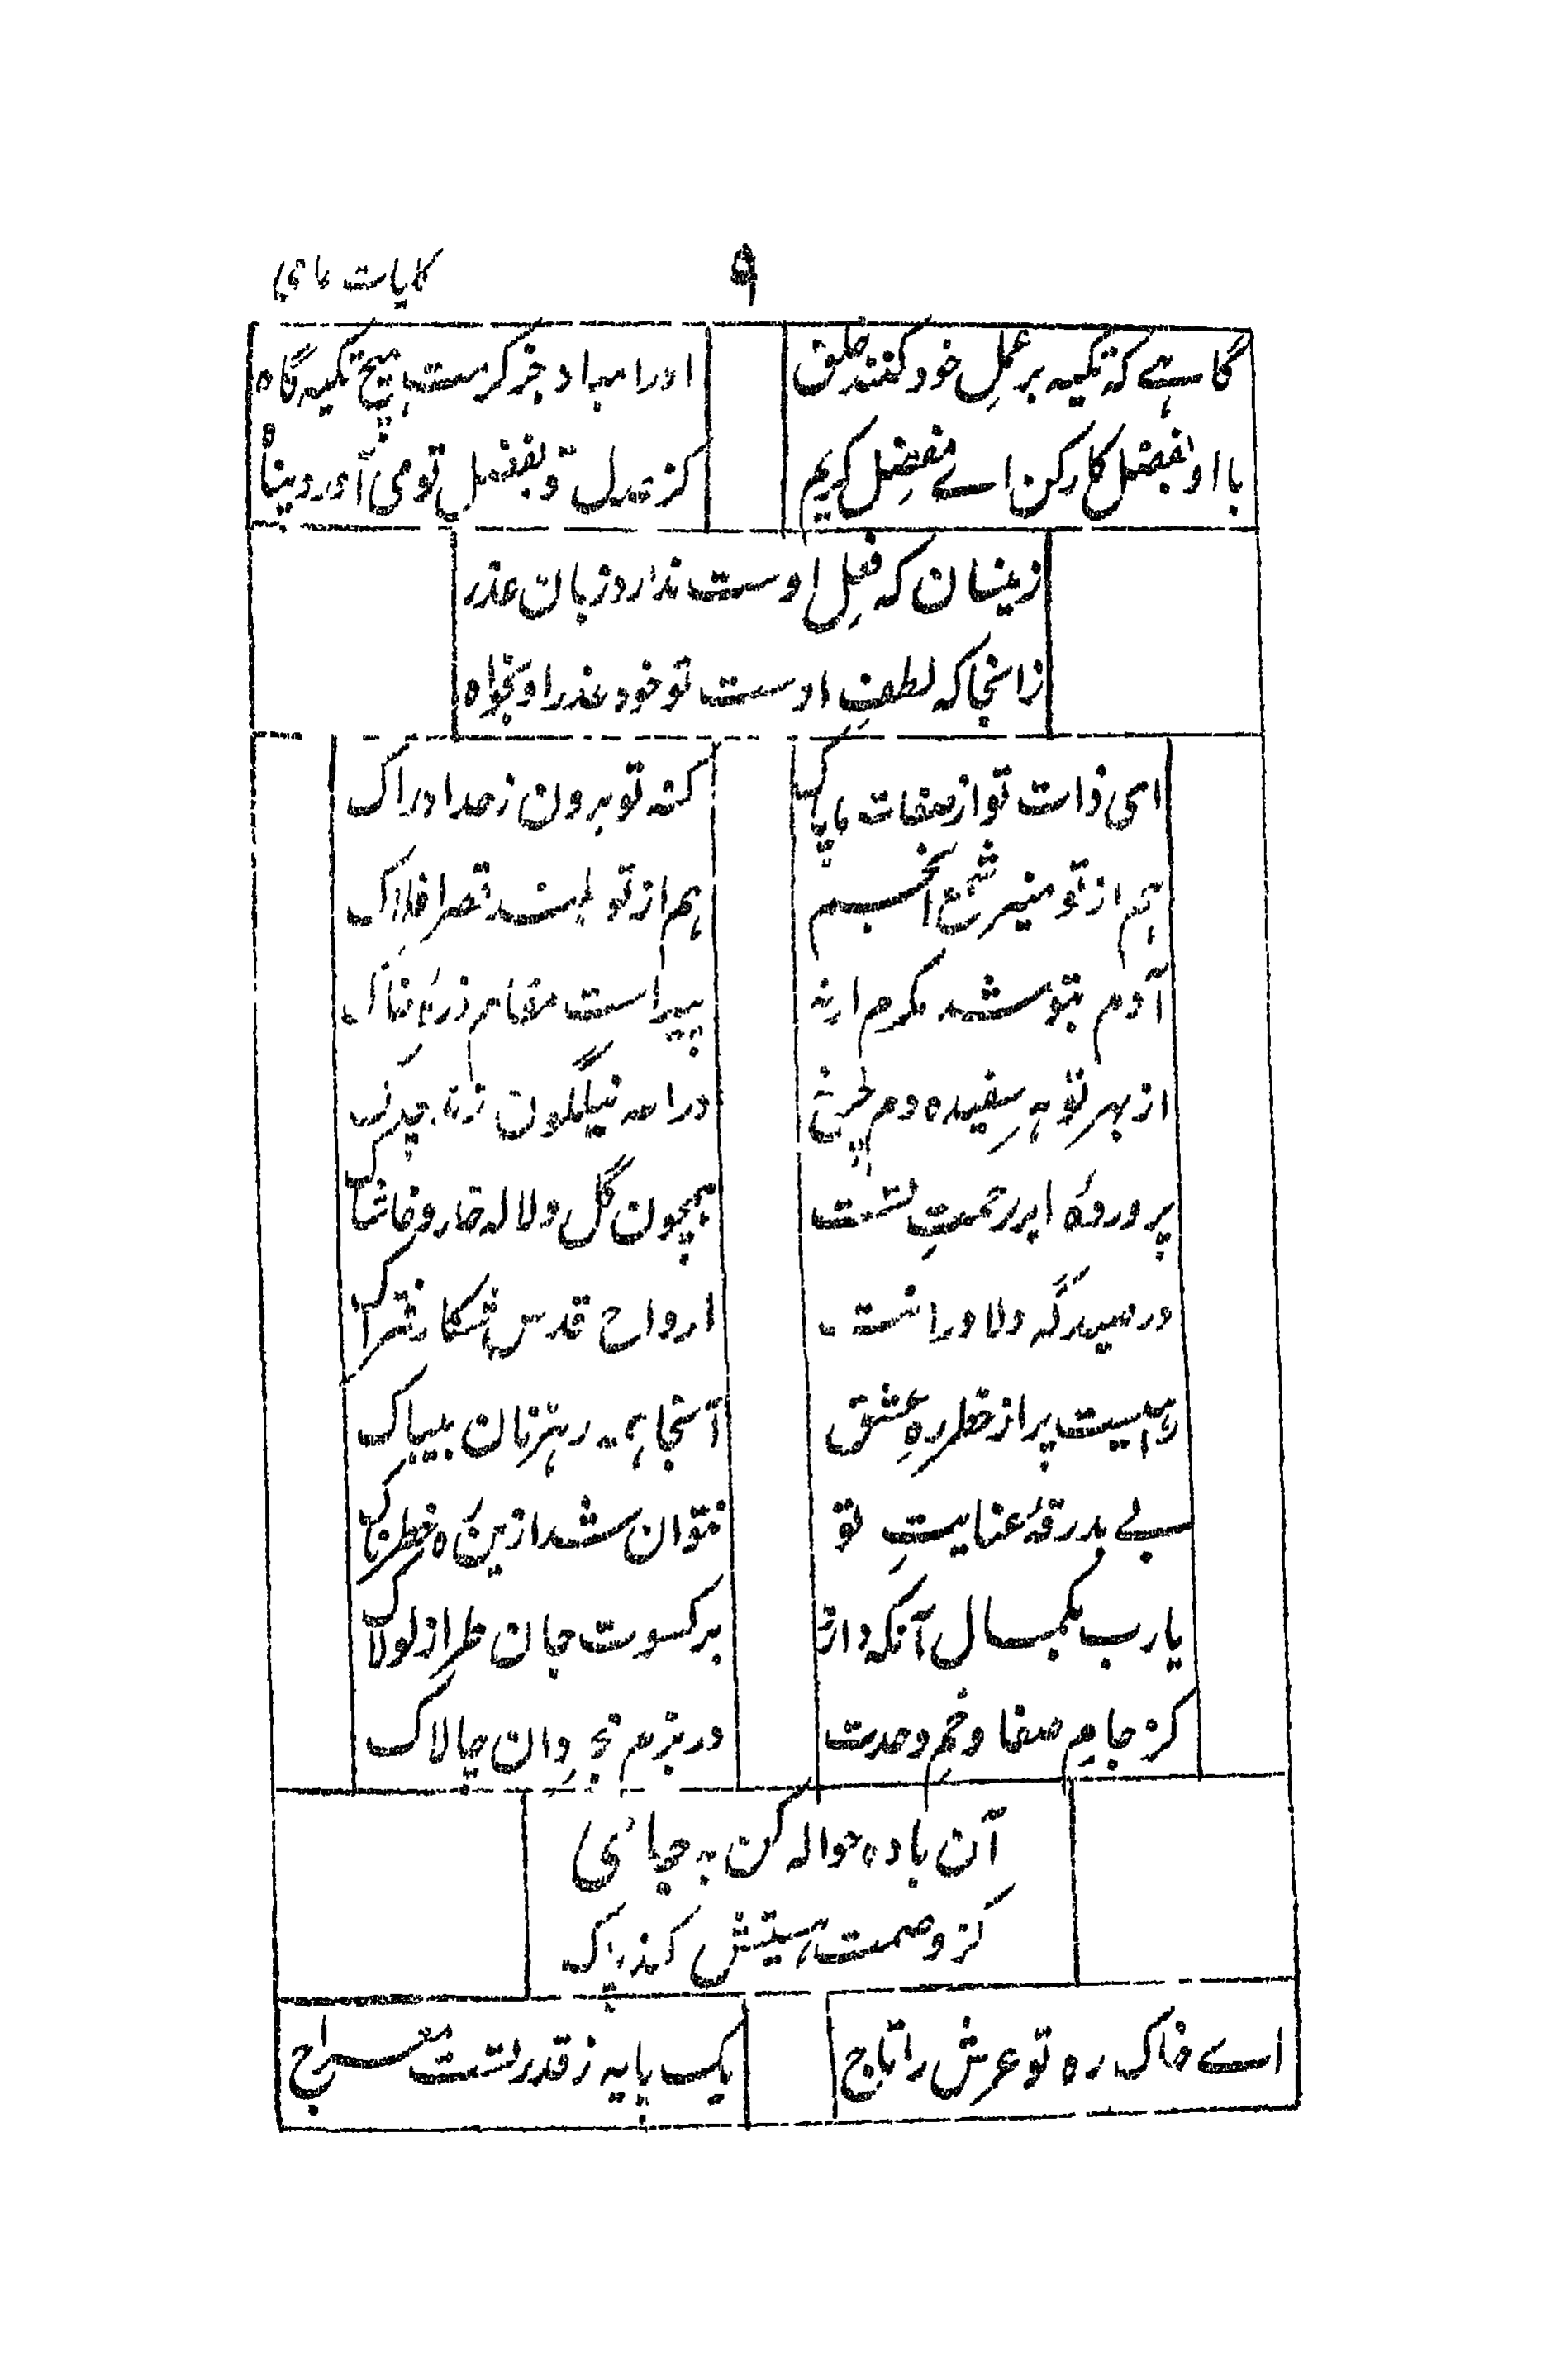 ۹
کلیات جامی
گاہے کہ تکیہ بر عمل خود کنند خلق
اورا مباد جز کرمت ہیچ تکیہ گاہ
با او بفضل کار کن اے مفضِل کریم
کز عدل تو بفضل تو می آورد پناہ
زینسان کہ فعلِ اوست ندارد زبان عذر
زانجا کہ لطفِ اوست تو خود عذر او بخواہ
ای ذات تو از صفات ما پاک
کنہ تو برون ز حد ادراک
ہم از تو منیر شمع انجم
ہم از تو بلند قصر افلاک
آدم بتو شد مکرم ارنہ
پیداست مقام ذرہ خاک
از بہر تو ہر سفیدہ دم چرخ
دراعہ نیلگون زند چاک
پروردۂ ابر رحمتِ تست
ہمچون گل و لالہ خار و خاشاک
در صیدگہ ولا ورا تست
ارواح قدس شکار فتراک
راہیست پر از خطر رہِ عشق
آنجا ہمہ رہزنان بیباک
بے بدرقۂ عنایتِ تو
نتوان شد ازین رہ خطرناک
یارب بکمال آنکہ دارد
بر کسوت جان طراز لولاک
کز جامِ صفا و خمِ وحدت
در بزم تجرد آن چالاک
آن بادہ حوالہ کن بہ جامی
کز وصمت ہستیش کند پاک
اے خاک رہ تو عرش را تاج
یک پایہ ز قدر تست معراج